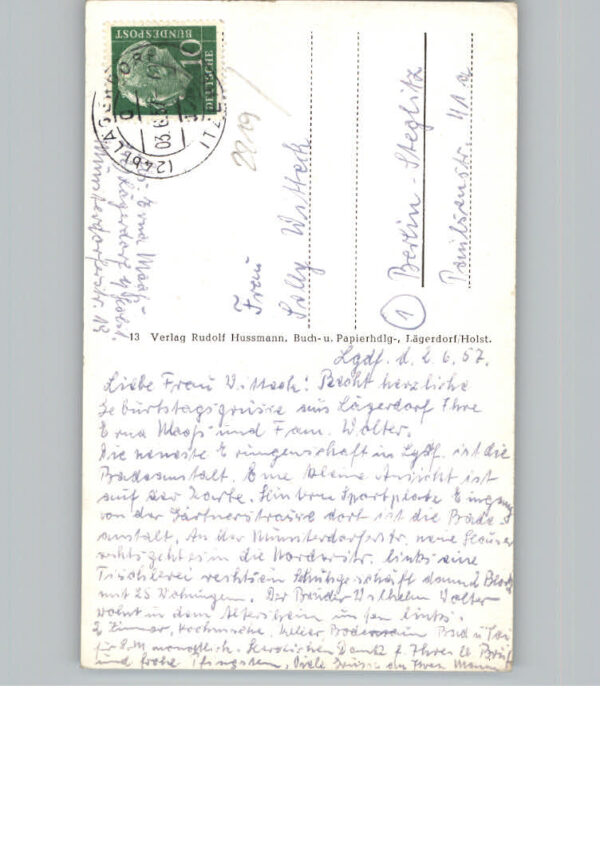 DEUTSCHE
BUNDESPOST
10
(24b) LÄGERDORF
03.6.57
2219
Erna Maaß
Lägerdorf
Münsterdorferstr. 13
Frau
Selly Witteck
① Berlin-Steglitz
13 Verlag Rudolf Hussmann, Buch- u. Papierhdlg-, Lägerdorf/Holst.
Lgdf. d. 2.6.57.
Liebe Frau Witteck! Recht herzliche
Geburtstagsgrüsse aus Lägerdorf Ihre
Erna Maaß und Fam. Wolter.
Die neueste Erungenschaft in Lgdf. ist die
Badeanstalt. Eine kleine Ansicht ist
auf der Karte. Eingang
von der Gärtnerstrasse dort ist die Bade
anstalt. An der Münsterdorferstr. neue Häuser
rechts geht es in die Norderstr. links eine
Tischlerei rechts ein Schuhgeschäft dann 2 Block
mit 25 Wohnungen. Der Bruder Wilhelm Wolter
wohnt in dem Altersheim unten links.
2 Zimmer, Kochnische, Keller, Bad u.
für DM monatlich. Herzlichen Dank f. Ihren lb. Brief
und frohe Pfingsten. Viele Grüsse an Ihren Mann